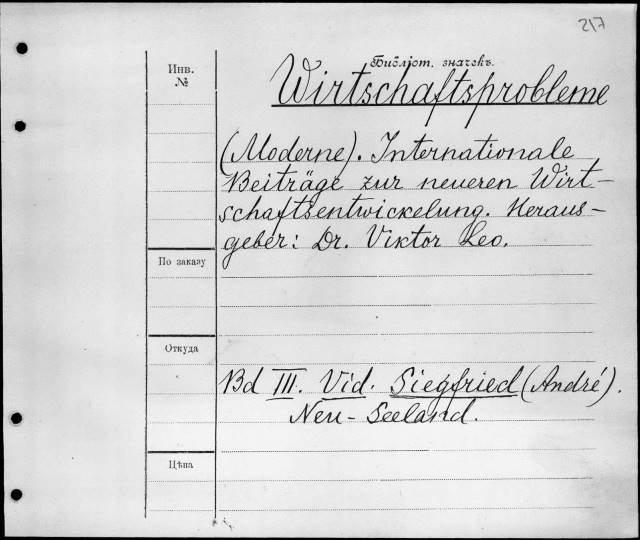 217
Библіот. значекъ.
Инв.
№
Wirtschaftsprobleme
(Moderne). Internationale
Beiträge zur neueren Wirt-
schaftsentwickelung. Heraus-
geber: Dr. Viktor Leo.
По заказу
Откуда
Bd III. Vid. Siegfried (André).
Neu-Seeland.
Цѣна